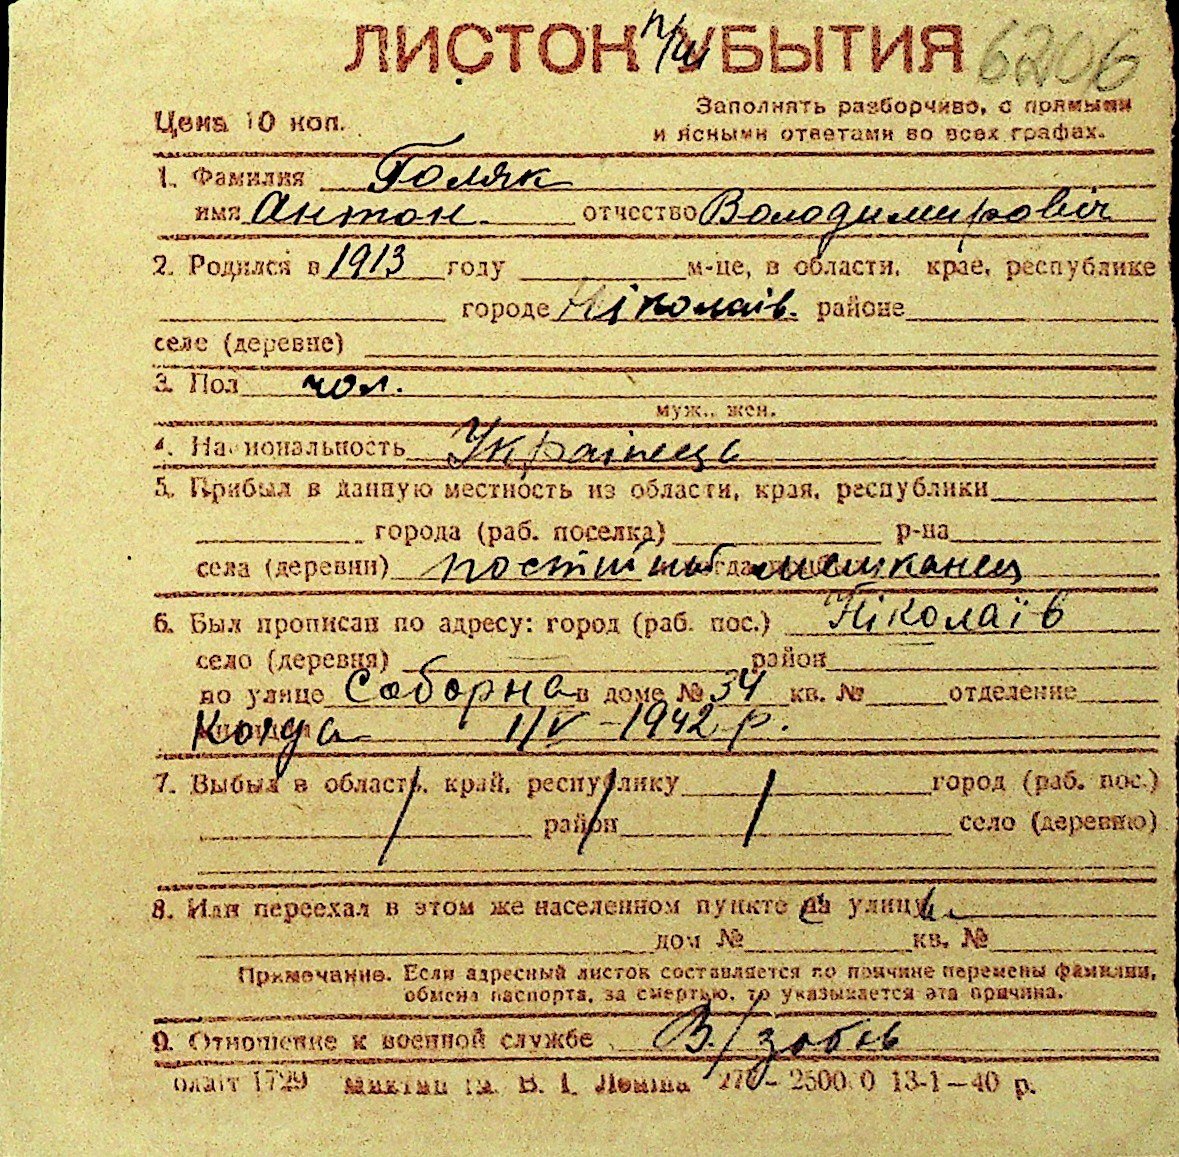 ЛИСТОК УБЫТИЯ 6206
п/ш
Цена 10 коп.
Заполнять разборчиво, с прямыми
и ясными ответами во всех графах.
1. Фамилия Поляк
имя Антон отчество Володимировіч
2. Родился в 1913 году м-це, в области, крае, республике
городе Ніколаїв. районе
селе (деревне)
3. Пол чол.
муж., жен.
4. Национальность Українець
5. Прибыл в данную местность из области, края, республики
города (раб. поселка) р-на
села (деревни) постійний мешканец
6. Был прописан по адресу: город (раб. пос.) Ніколаїв
село (деревня) район
по улице Соборна в доме № 34 кв. № отделение
Когда 1/V – 1942 р.
7. Выбыл в область, край, республику город (раб. пос.)
район село (деревню)
8. Или переехал в этом же населенном пункте на улицу
дом № кв. №
Примечание. Если адресный листок составляется по причине перемены фамилии,
обмена паспорта, за смертью, то указывается эта причина.
9. Отношение к военной службе В/зобов
1729 ім. В. І. Леніна 13-1—40 р.